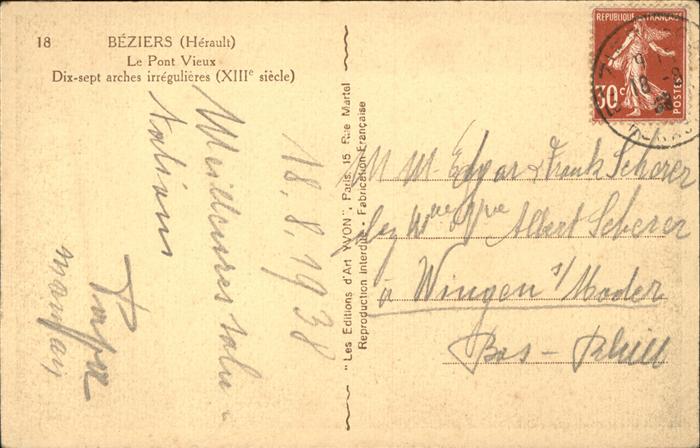 18 BÉZIERS (Hérault)
Le Pont Vieux
Dix-sept arches irrégulières (XIIIᵉ siècle)
18.8.1938
Meilleures salu-
tations
Papa
maman
"Les Editions d'Art YVON", Paris, 15 Rue Martel
Reproduction Interdite - Fabrication Française
REPUBLIQUE FRANÇAISE
30c
POSTES
M M. Edgar & Frank Scherer
chez Mme Vve Albert Scherer
à Wingen s/Moder
Bas-Rhin